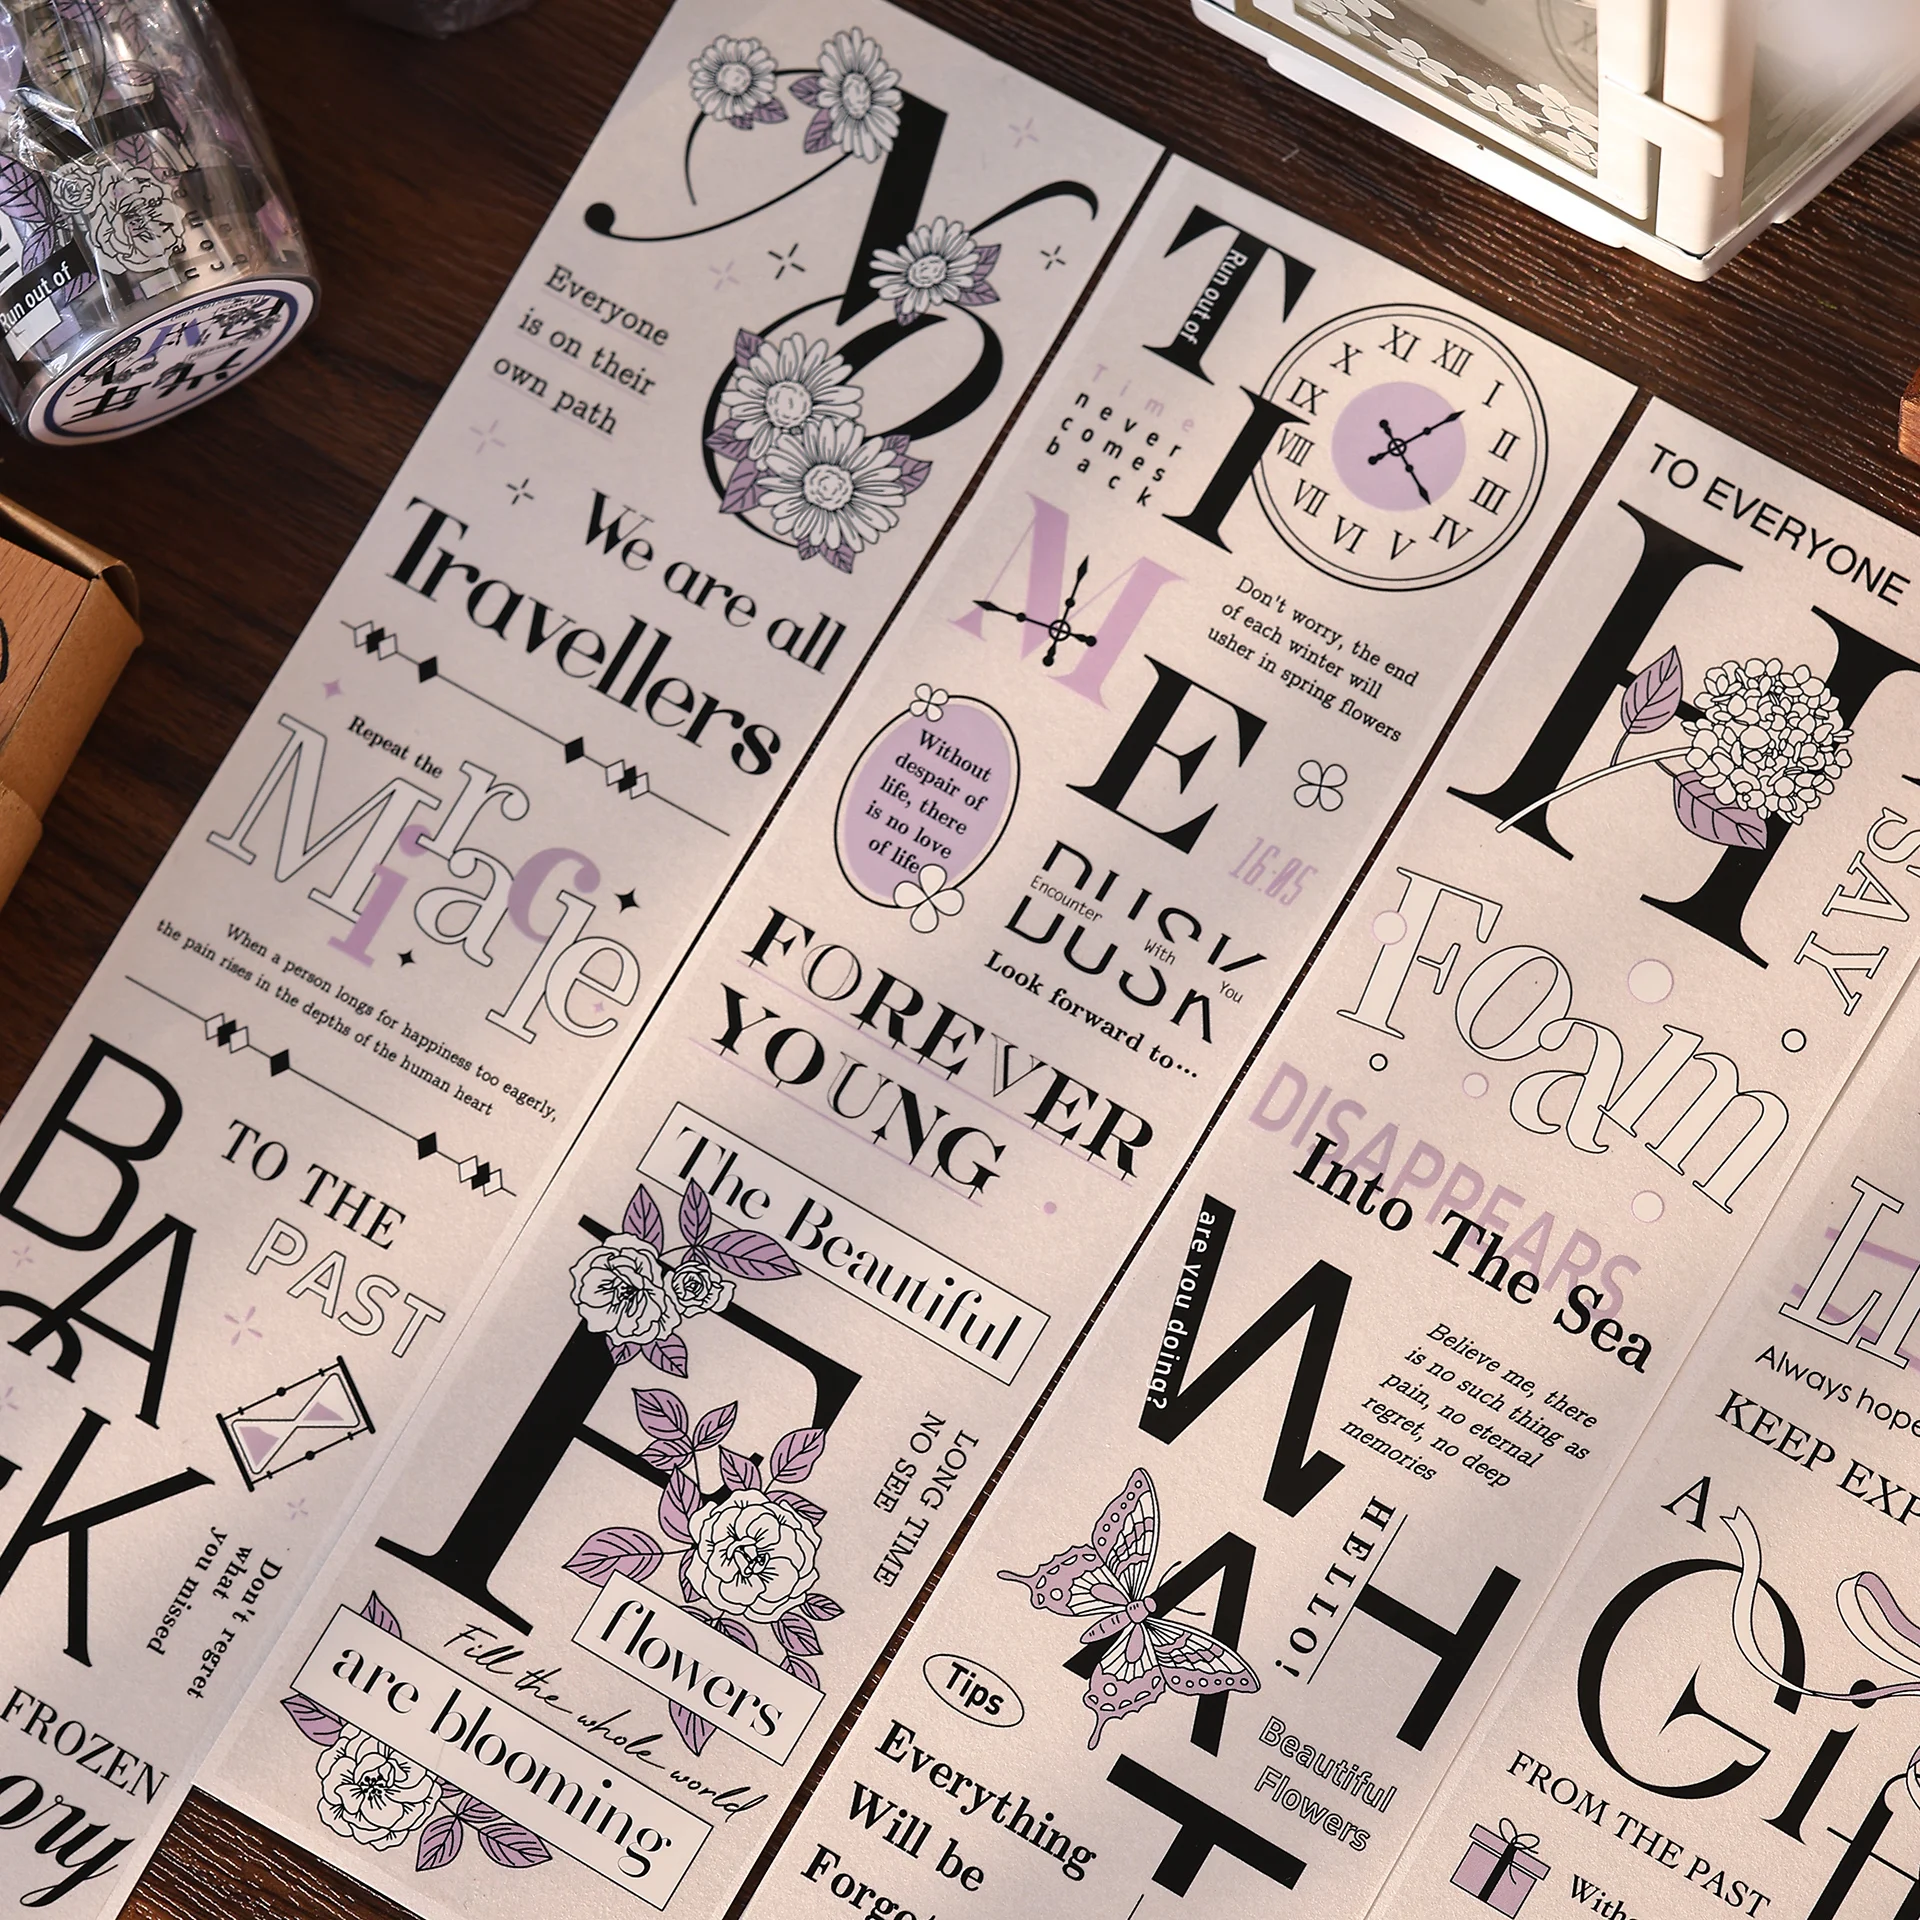 Run out of
Everyone
is on their
own path
We are all
Travellers
Repeat the
Miracle
When a person longs for happiness too eagerly,
the pain rises in the depths of the human heart
BACK
TO THE
PAST
Don't regret
what
you missed
FROZEN
TIME
Run out of
XII
I
II
III
IV
V
VI
VII
VIII
IX
X
XI
Time
never
comes
back
Don't worry, the end
of each winter will
usher in spring flowers
Without
despair of
life, there
is no love
of life
16:05
DUSK
Encounter
With
You
Look forward to...
FOREVER
YOUNG
The Beautiful
F
LONG TIME
NO SEE
flowers
Fill the whole world
are blooming
TO EVERYONE
H
SAY
Foam
DISAPPEARS
Into The Sea
WHAT
are you doing?
Believe me, there
is no such thing as
pain, no eternal
regret, no deep
memories
HELLO!
Tips
Everything
Will be
Beautiful
Flowers
Always hope
KEEP
A
Gift
FROM THE PAST